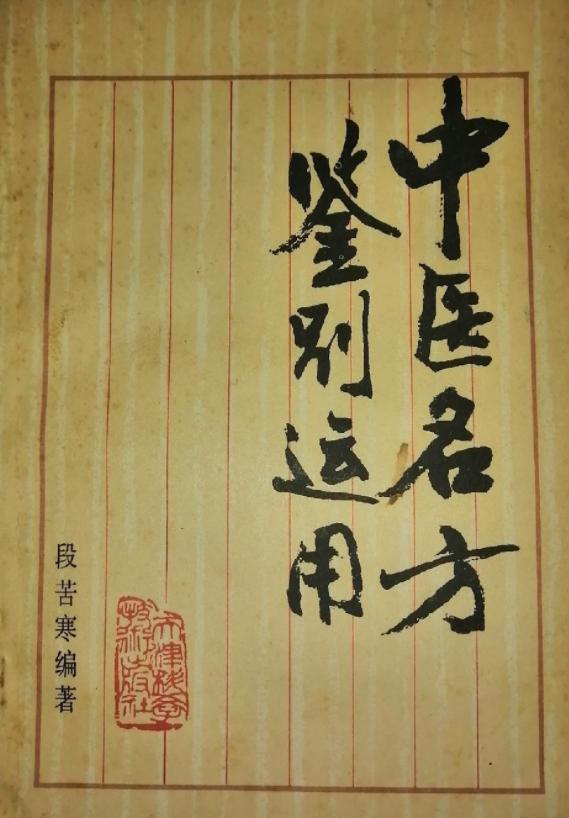 中医名方
鉴别运用
段苦寒编著
天津科学
技术出版社